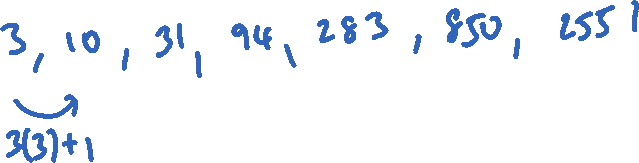 3, 10, 31, 94, 283, 850, 2551
3(3)+1